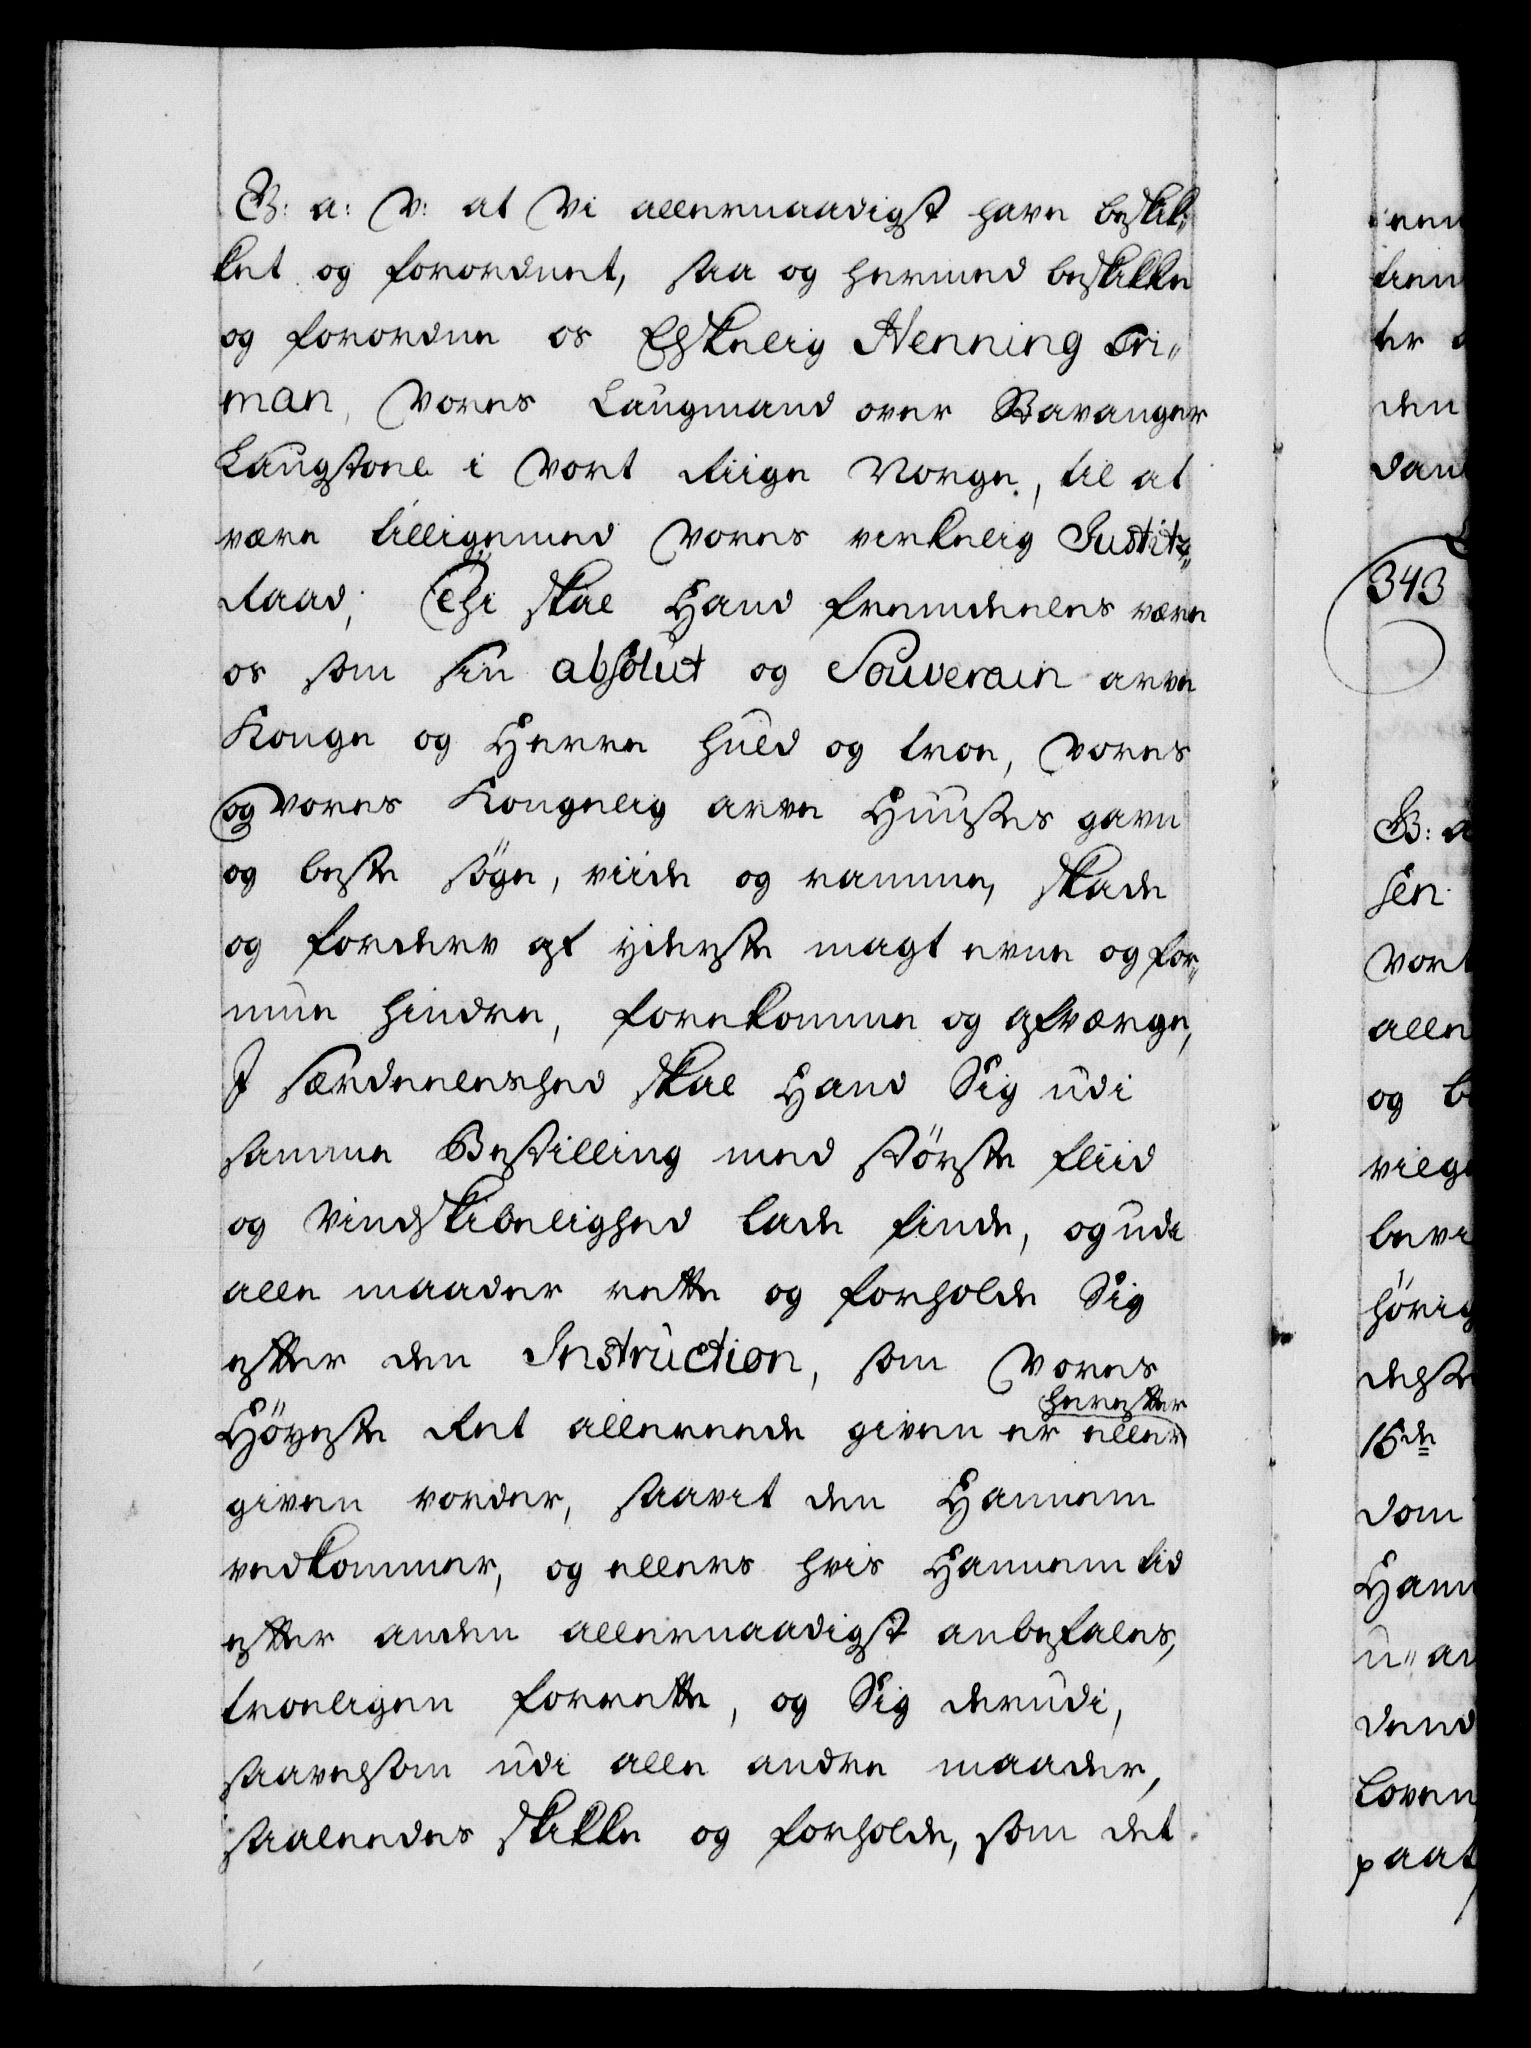 G: a: V: at Vi allernaadigst have beskik-
ket og forordnet, saa og hermed beskikke
og forordne os Elskelig Henning Fri-
man, Vores Laugmand over Stavanger
Laugstoel i Vort Riige Norge, til at
være tilligemed Vores virkelig Justitz-
Raad; Thi skal Hand fremdeeles være
os som sin absolut og Souverain arve
Konge og Herre huld og troe, Vores
og Vores Kongelig arve Huuses gavn
og beste søge, viide og ramme, skade
og forderv af yderste magt evne og for-
mue hindre, forekomme og afværge,
I Særdeeleshed skal Hand Sig udi
samme Bestilling med største fliid
og Vindskibelighed lade finde, og udi
alle maader rette og forholde Sig
efter den Instruction, som Vores
Høyeste Ret allereede given er eller herefter
given vorder, saavit den Hannem
vedkommer, og ellers hvis Hannem tid
efter anden allernaadigst anbefales,
troeligen forrette, og Sig derudi,
saavelsom udi alle andre maader,
saaleedes skikke og forholde, som det
343
G: a
sen
Vort
alle
og b
hørig
deste
16de
dom
Hann
dend
Loven
paat